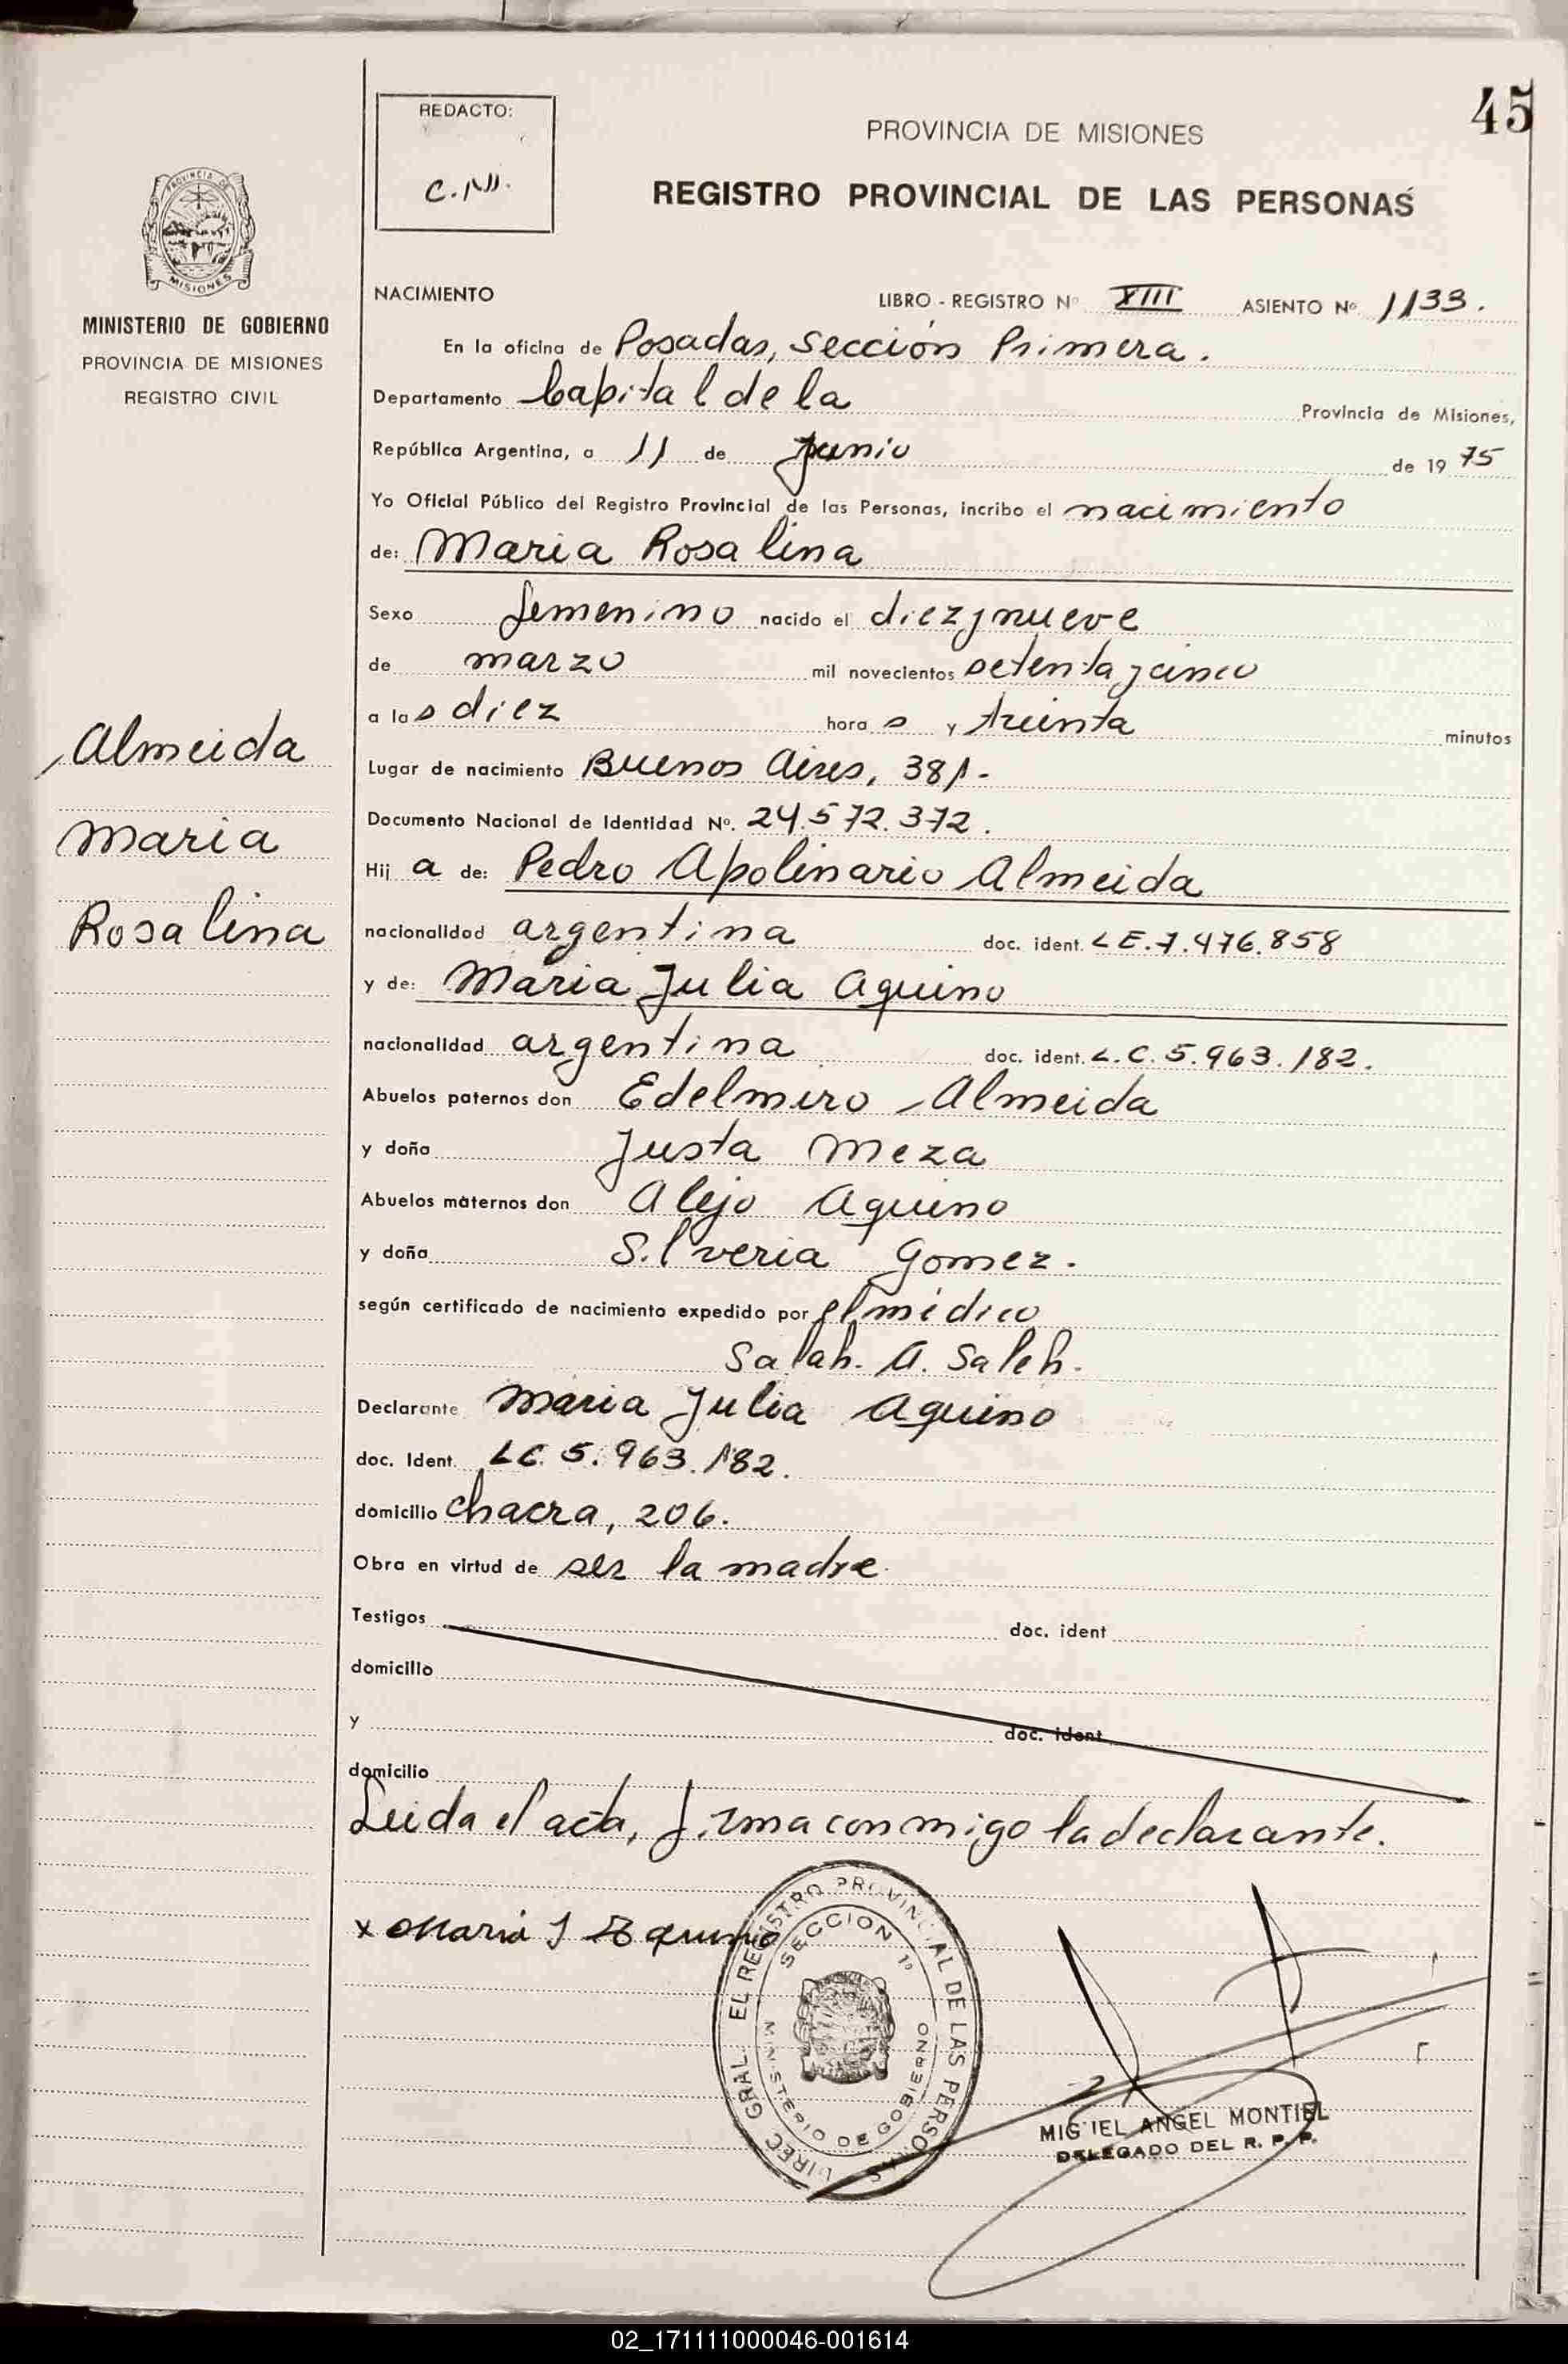 45
REDACTO:
PROVINCIA DE MISIONES
REGISTRO PROVINCIAL DE LAS PERSONAS
PROVINCIA DE
MISIONES
MINISTERIO DE GOBIERNO
PROVINCIA DE MISIONES
REGISTRO CIVIL
Almeida
Maria
Rosalina
NACIMIENTO LIBRO - REGISTRO Nº XIII ASIENTO Nº 1133.
En la oficina de Posadas, Sección Primera.
Departamento Capital de la Provincia de Misiones,
República Argentina, a 11 de Junio de 19 75
Yo Oficial Público del Registro Provincial de las Personas, incribo el nacimiento
de: Maria Rosalina
Sexo femenino nacido el diez y nueve
de marzo mil novecientos setenta y cinco
a las diez horas y treinta minutos
Lugar de nacimiento Buenos Aires, 381-
Documento Nacional de Identidad Nº. 24.572.372.
Hij a de: Pedro Apolinario Almeida
nacionalidad argentina doc. ident. LE.7.476.858
y de: Maria Julia Aquino
nacionalidad argentina doc. ident. L.C.5.963.182.
Abuelos paternos don Edelmiro Almeida
y doña Justa Meza
Abuelos maternos don Alejo Aquino
y doña Silveria Gomez.
según certificado de nacimiento expedido por el médico
Salah. A. Saleh.
Declarante Maria Julia Aquino
doc. Ident. LC. 5.963.182.
domicilio Chacra, 206.
Obra en virtud de ser la madre
Testigos doc. ident
domicilio
y doc. ident
domicilio
Leida el acta, firma conmigo la declarante.
x Maria J Aquino
DIREC GRAL. EL REGISTRO PROVINCIAL DE LAS PERSONAS
SECCION 1º
MINISTERIO DE GOBIERNO
MIGUEL ANGEL MONTIEL
DELEGADO DEL R. P. P.
02_171111000046-001614